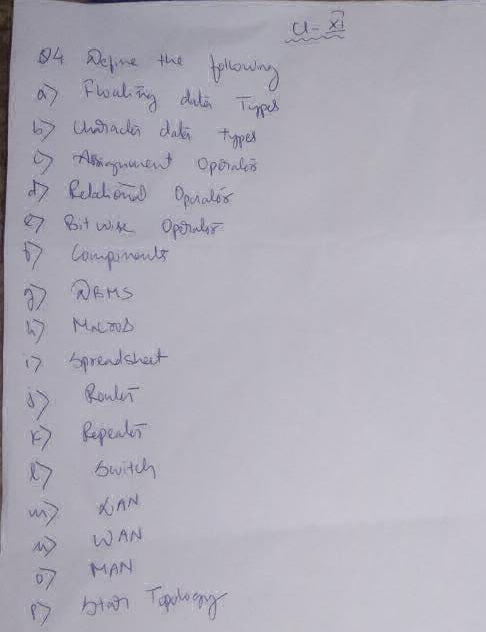 Cl- XI
Q4 Define the following
a) Floating data Types
b) Character data types
c) Assignment Operator
d) Relational Operator
e) Bitwise Operator
f) Components
g) DBMS
h) Macros
i) Spreadsheet
j) Router
k) Repeater
l) Switch
m) LAN
n) WAN
o) MAN
p) Star Topology